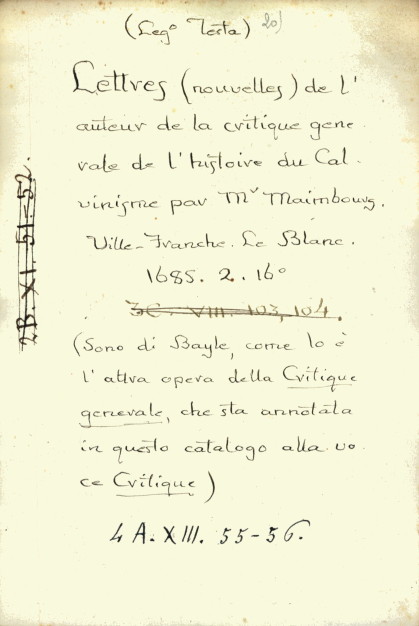 (Leg° Testa) 20)
Lettres (nouvelles) de l'
auteur de la critique gene
rale de l'histoire du Cal
vinisme par Mr Maimbourg.
Ville-Franche. Le Blanc.
1685. 2. 16°
3C. VIII. 103, 104.
(Sono di Bayle, come lo è
l'altra opera della Critique
generale, che sta annotata
in questo catalogo alla vo
ce Critique)
4 A. XIII. 55-56.
2B. XI. 51-52.